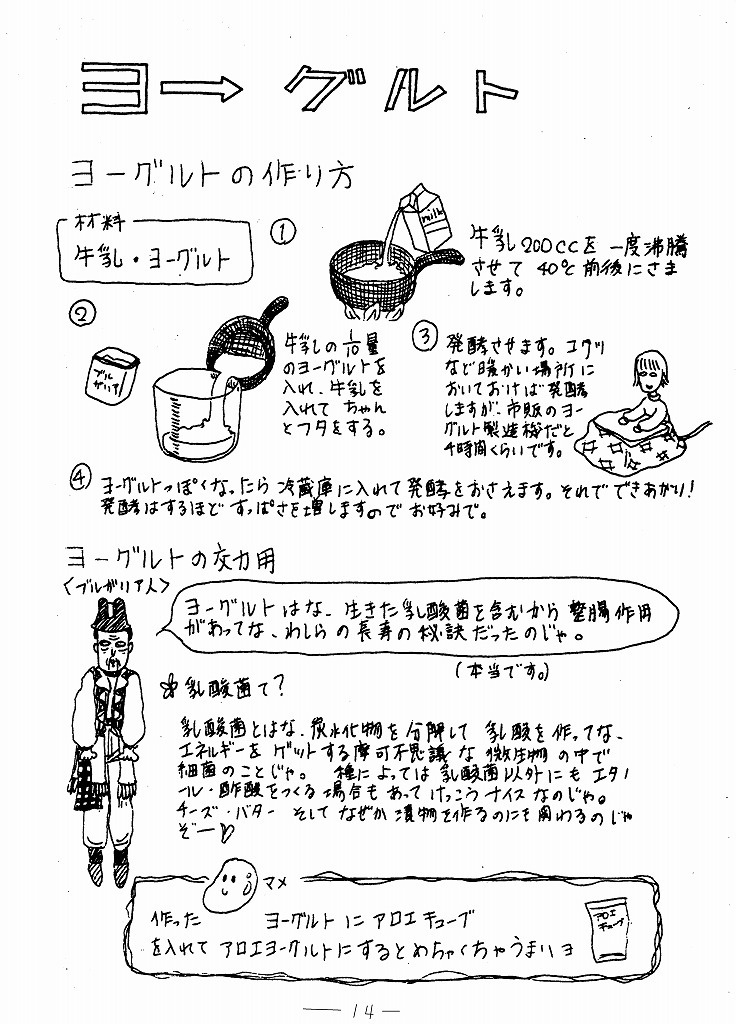 ヨ→グルト
ヨーグルトの作り方
材料
牛乳・ヨーグルト
①
milk
牛乳200ccを一度沸騰
させて40℃前後にさま
します。
②
ブル
ガリア
牛乳の1/10量
のヨーグルトを
入れ、牛乳を
入れて ちゃん
とフタをする。
③
発酵させます。コタツ
など暖かい場所に
おいておけば発酵
しますが、市販のヨー
グルト製造機だと
4時間くらいです。
④ ヨーグルトっぽくなったら冷蔵庫に入れて発酵をおさえます。それでできあがり!
発酵はするほどすっぱさを増しますのでお好みで。
ヨーグルトの効用
〈ブルガリア人〉
ヨーグルトはな、生きた乳酸菌を含むから整腸作用
があってな、わしらの長寿の秘訣だったのじゃ。
(本当です。)
乳酸菌て?
乳酸菌とはな、炭水化物を分解して 乳酸を作ってな、
エネルギーをゲットする摩可不思議な微生物の中で
細菌のことじゃ。 種によっては乳酸菌以外にもエタノ
ール・酢酸をつくる場合もあってけっこうナイスなのじゃ。
チーズ・バター そしてなぜか漬物を作るのにも関わるのじゃ
ぞー♡
マメ
作った ヨーグルトにアロエキューブ
を入れてアロエヨーグルトにするとめちゃくちゃうまいヨ
アロエ
キューブ
— 14 —